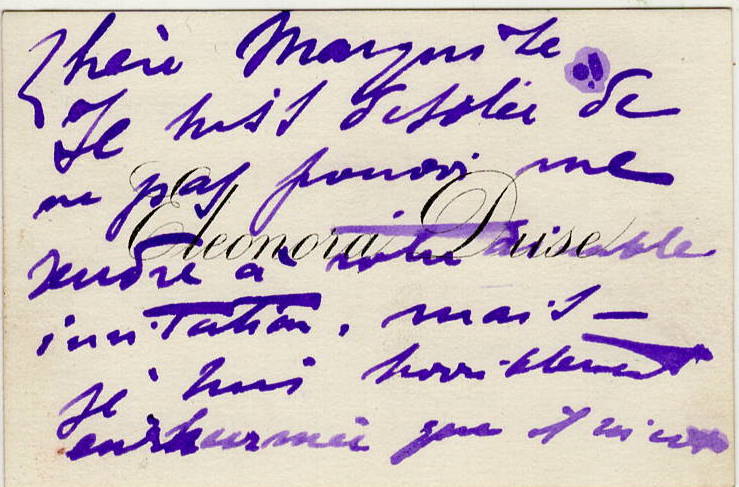 Chère Marguite
Je suis désolée de
ne pas pouvoir me
Eleonora Duse
rendre à votre aimable
invitation, mais —
je suis horriblement
enrhumée que